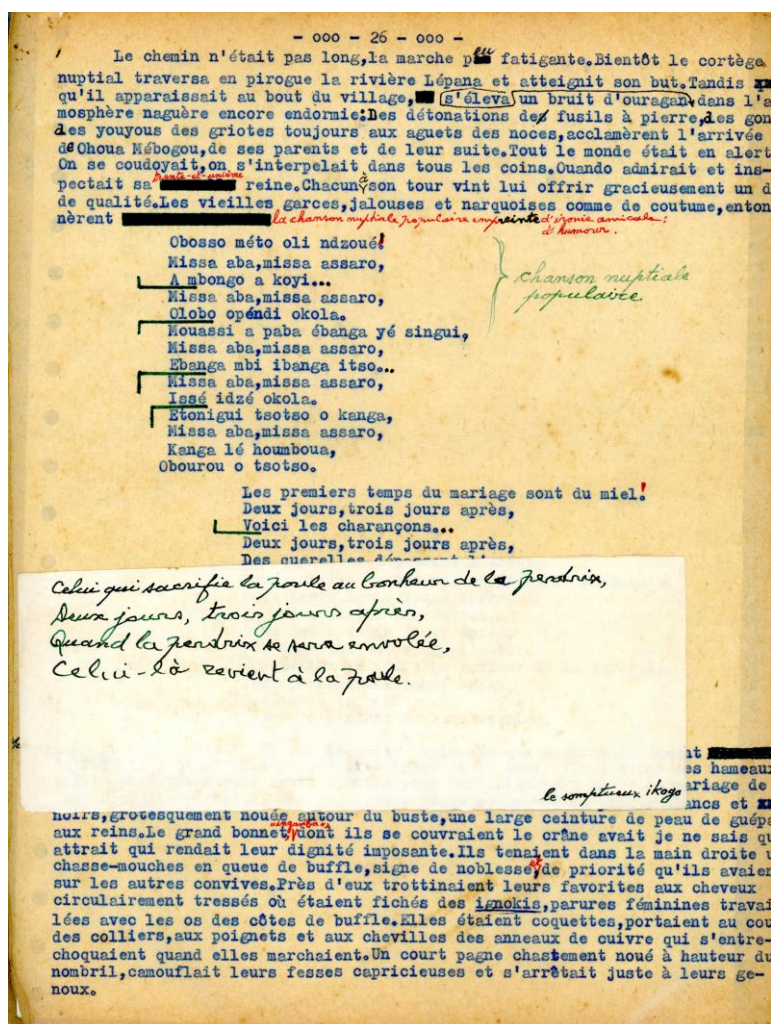 - ooo - 26 - ooo -
Le chemin n'était pas long,la marche peu fatigante.Bientôt le cortège
nuptial traversa en pirogue la rivière Lépana et atteignit son but.Tandis
qu'il apparaissait au bout du village, s'éleva un bruit d'ouragan dans l'a
mosphère naguère encore endormie:Des détonations de fusils à pierre,des gon
des youyous des griotes toujours aux aguets des noces,acclamèrent l'arrivée
de Ohoua Mébogou,de ses parents et de leur suite.Tout le monde était en alert
On se coudoyait,on s'interpelait dans tous les coins.Ouando admirait et ins-
pectait sa trente-et-unième reine.Chacun à son tour vint lui offrir gracieusement un d
de qualité.Les vieilles garces,jalouses et narquoises comme de coutume,enton
nèrent la chanson nuptiale populaire empreinte d'ironie amicale:
d'humour.
Obosso méto oli ndzoué!
Missa aba,missa assaro,
A mbongo a koyi...
Missa aba,missa assaro,
Olobo opéndi okola.
Mouassi a paba ébanga yé singui,
Missa aba,missa assaro,
Ebanga mbi ibanga itso...
Missa aba,missa assaro,
Issé idzé okola.
Etonigui tsotso o kanga,
Missa aba,missa assaro,
Kanga lé houmboua,
Obourou o tsotso.
chanson nuptiale
populaire
Les premiers temps du mariage sont du miel!
Deux jours,trois jours après,
Voici les charançons...
Deux jours,trois jours après,
Des querelles
Celui qui sacrifie la poule au bonheur de la perdrix,
Deux jours, trois jours après,
Quand la perdrix se sera envolée,
Celui-là revient à la poule.
nt
es hameaux
ariage de
le somptueux ikogo
ancs et
noirs,grotesquement nouée autour du buste,une large ceinture de peau de guépa
aux reins.Le grand bonnet dont ils se couvraient le crâne avait je ne sais qu
attrait qui rendait leur dignité imposante.Ils tenaient dans la main droite u
chasse-mouches en queue de buffle,signe de noblesse et de priorité qu'ils avaien
sur les autres convives.Près d'eux trottinaient leurs favorites aux cheveux
circulairement tressés où étaient fichés des ignokis,parures féminines travai
lées avec les os des côtes de buffle.Elles étaient coquettes,portaient au cou
des colliers,aux poignets et aux chevilles des anneaux de cuivre qui s'entre-
choquaient quand elles marchaient.Un court pagne chastement noué à hauteur du
nombril,camouflait leurs fesses capricieuses et s'arrêtait juste à leurs ge-
noux.